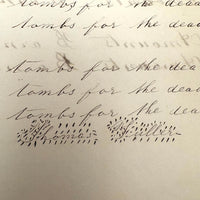 tombs for the dead
tombs for the dead
tombs for the dead
tombs for the dead
Thomas